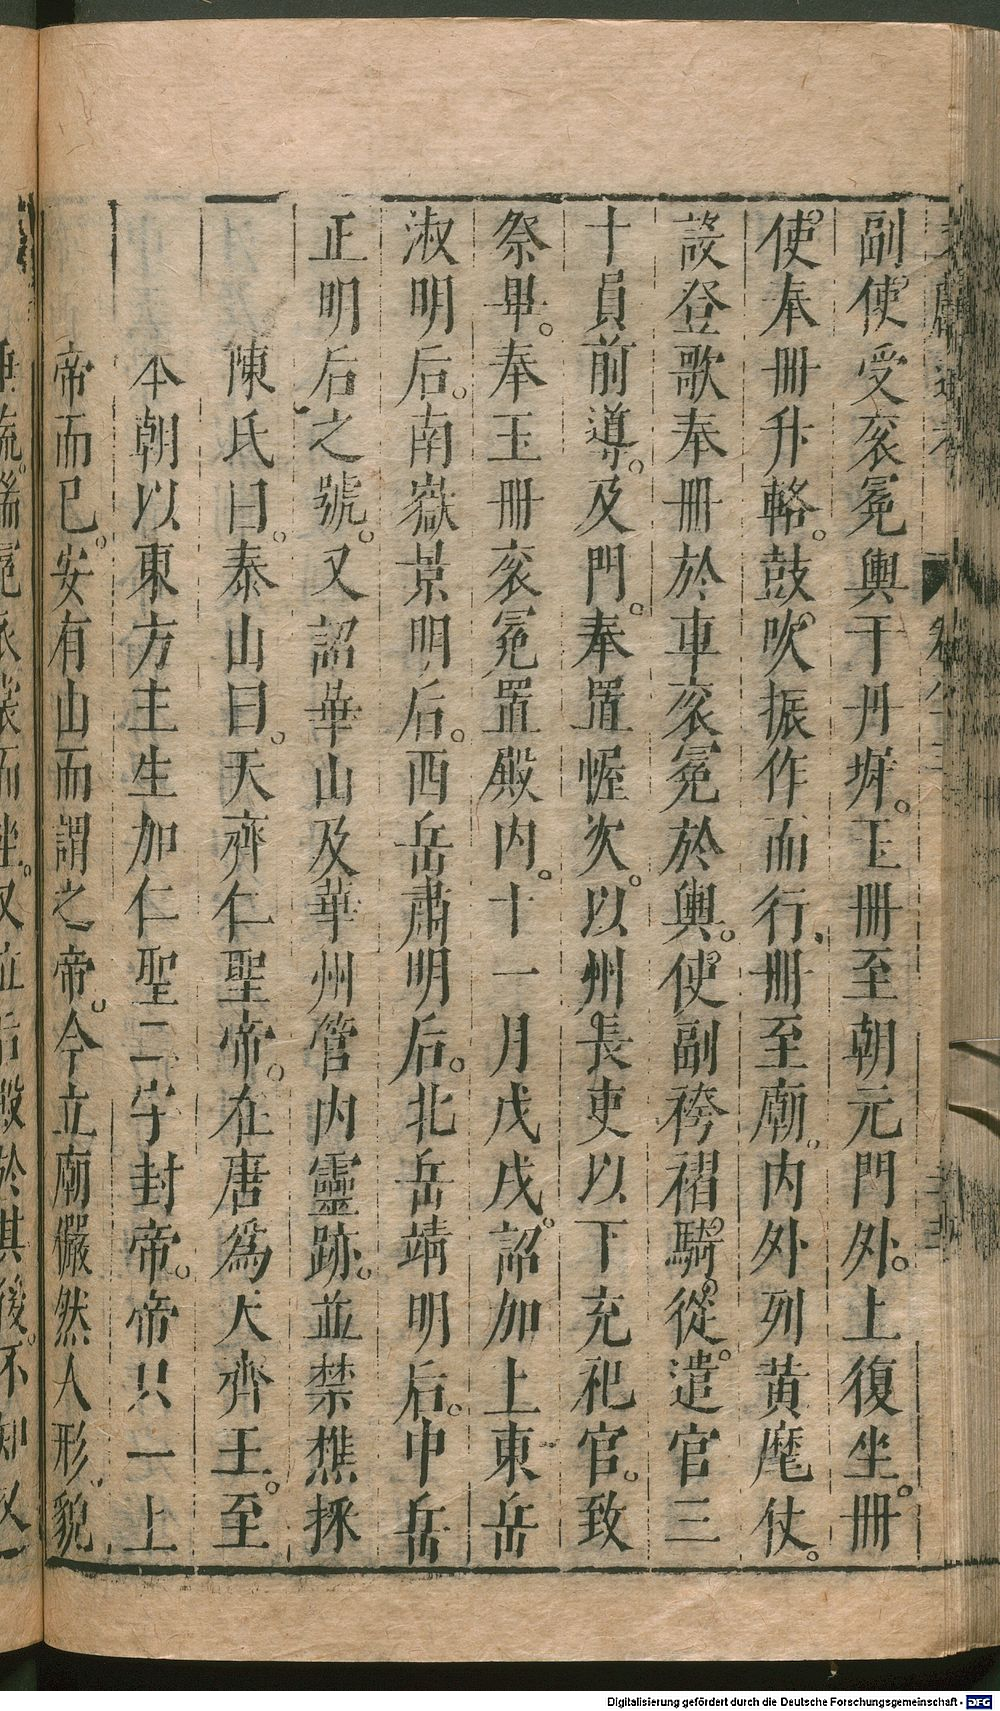 副使受衮冕輿于丹墀。玉冊至朝元門外。上復坐。冊
使奉冊升輅。鼓吹振作而行、冊至廟。內外列黃麾仗。
設登歌奉冊於車衮冕於輿。使副袴褶騎從。遣官三
十員前導。及門。奉置幄次。以州長吏以下充祀官。致
祭畢。奉玉冊衮冕置殿內。十一月戊戌。詔加上東岳
淑明后。南嶽景明后。西岳肅明后。北岳靖明后。中岳
正明后之號。又詔華山及華州管內靈跡。並禁樵採
陳氏曰。泰山曰。天齊仁聖帝。在唐爲天齊王。至
本朝以東方主生加仁聖二字封帝。帝只一上
帝而已。安有山而謂之帝。今立廟儼然人形貌
垂旒端冕衣裳而坐。又立后殿於其後。不知又
Digitalisierung gefördert durch die Deutsche Forschungsgemeinschaft - DFG